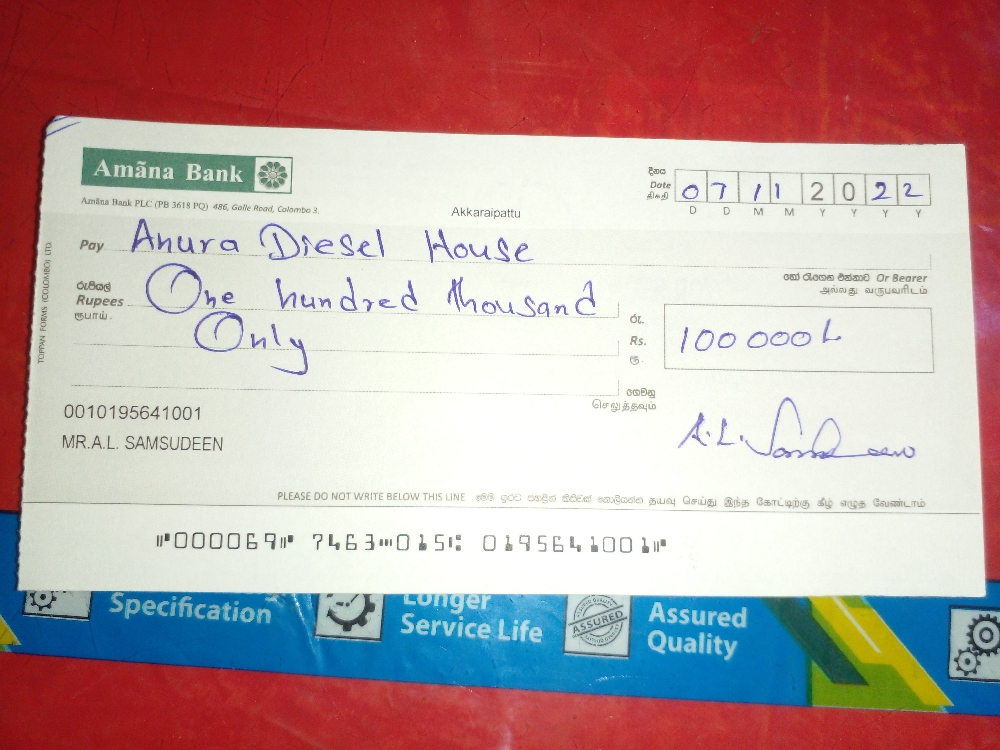 Amãna Bank
Amãna Bank PLC (PB 3618 PQ) 486, Galle Road, Colombo 3.
Akkaraipattu
දිනය
Date
திகதி
07 11 2022
D D M M Y Y Y Y
Pay Anura Diesel House
හෝ රැගෙන එන්නාට Or Bearer
அல்லது வருபவரிடம்
රුපියල්
Rupees One hundred thousand
ரூபாய்
Only
රු.
Rs. 100 000
ரூ.
ගෙවනු
செலுத்தவும்
0010195641001
MR.A.L. SAMSUDEEN
A.L. Samsudeen
PLEASE DO NOT WRITE BELOW THIS LINE மெම ඉරට පහළින් කිසිවක් නොලියන්න தயவு செய்து இந்த கோட்டிற்கு கீழ் எழுத வேண்டாம்
⑈000069⑈ 7463⑉015⑆ 0195641001⑈
TOPPAN FORMS (COLOMBO) LTD.
Specification
Longer
Service Life
ASSURED
Assured
Quality